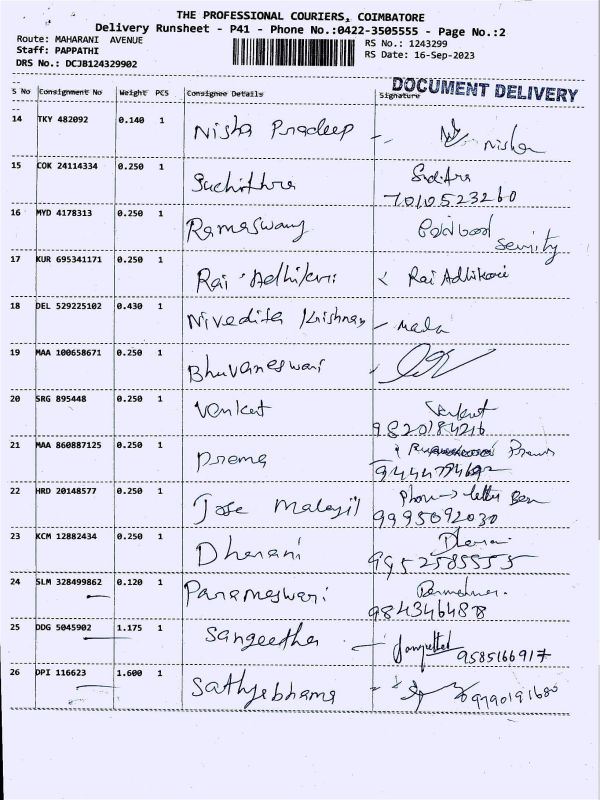 THE PROFESSIONAL COURIERS, COIMBATORE
Delivery Runsheet - P41 - Phone No.:0422-3505555 - Page No.:2
Route: MAHARANI AVENUE
RS No.: 1243299
Staff: PAPPATHI
RS Date: 16-Sep-2023
DRS No.: DCJB124329902
DOCUMENT DELIVERY
S No Consignment No Weight PCS Consignee Details Signature
14 TKY 482092 0.140 1 Nisha Pradeep - nisha
15 COK 24114334 0.250 1 Suchithra
7010523260
16 MYD 4178313 0.250 1 Ramaswamy
Security
17 KUR 695341171 0.250 1 Rai Adhikari Rai Adhikari
18 DEL 529225102 0.430 1 Nivedita Krishnan - mala
19 MAA 100658671 0.250 1 Bhuvaneswari
20 SRG 895448 0.250 1 Venkat Venkat
9820184216
21 MAA 860887125 0.250 1 Prema
22 HRD 20148577 0.250 1 Jose Phone → letter Box
9995092030
23 KCM 12882434 0.250 1 Dharani
9952585555
24 SLM 328499862 0.120 1 Parameswari
25 DDG 5045902 1.175 1 Sangeetha
9585166917
26 DPI 116623 1.600 1 Sathyabhama
9790191680